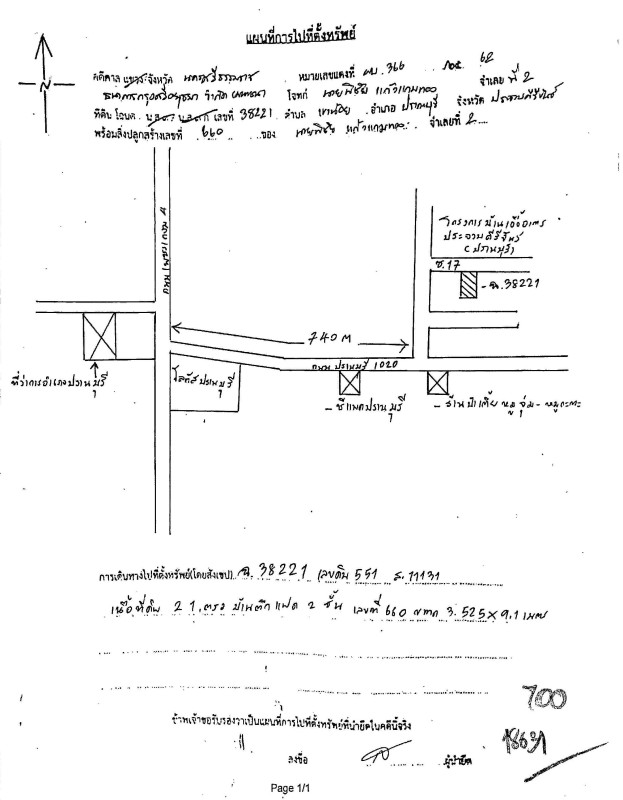 แผนที่การไปที่ตั้งทรัพย์
N
คดีศาล จังหวัด นครศรีธรรมราช หมายเลขแดงที่ ผบ. 366 62
ธนาคารกรุงศรีอยุธยา จำกัด มหาชน โจทก์ นายพิชัย แก้วแกมทอง จำเลย ที่ 2
ที่ดิน โฉนด เลขที่ 38221 ตำบล เขาน้อย อำเภอ ปราณบุรี จังหวัด ประจวบคีรีขันธ์
พร้อมสิ่งปลูกสร้างเลขที่ 660 ของ นายพิชัย แก้วแกมทอง จำเลยที่ 2
ถนนเพชรเกษม
โครงการบ้านเอื้ออาทร
ประจวบคีรีขันธ์
(ปราณบุรี)
ซ.17
- ฉ. 38221
740 M
ถนน ปราณบุรี 1020
ที่ว่าการอำเภอปราณบุรี
โลตัสปราณบุรี
- ซีแพคปราณบุรี
- ร้านป้าเตี้ย หมูจุ่ม - หมูกะทะ
การเดินทางไปที่ตั้งทรัพย์(โดยสังเขป) ฉ. 38221 เลขดิน 551 ร. 11131
เนื้อที่ดิน 21 ตรว บ้านตึกแฝด 2 ชั้น เลขที่ 660 ขนาด 3.525 X 9.1 เมตร
700
ข้าพเจ้าขอรับรองว่าเป็นแผนที่การไปที่ตั้งทรัพย์ที่นำยึดในคดีนี้จริง
18631
ลงชื่อ ผู้นำยึด
Page 1/1